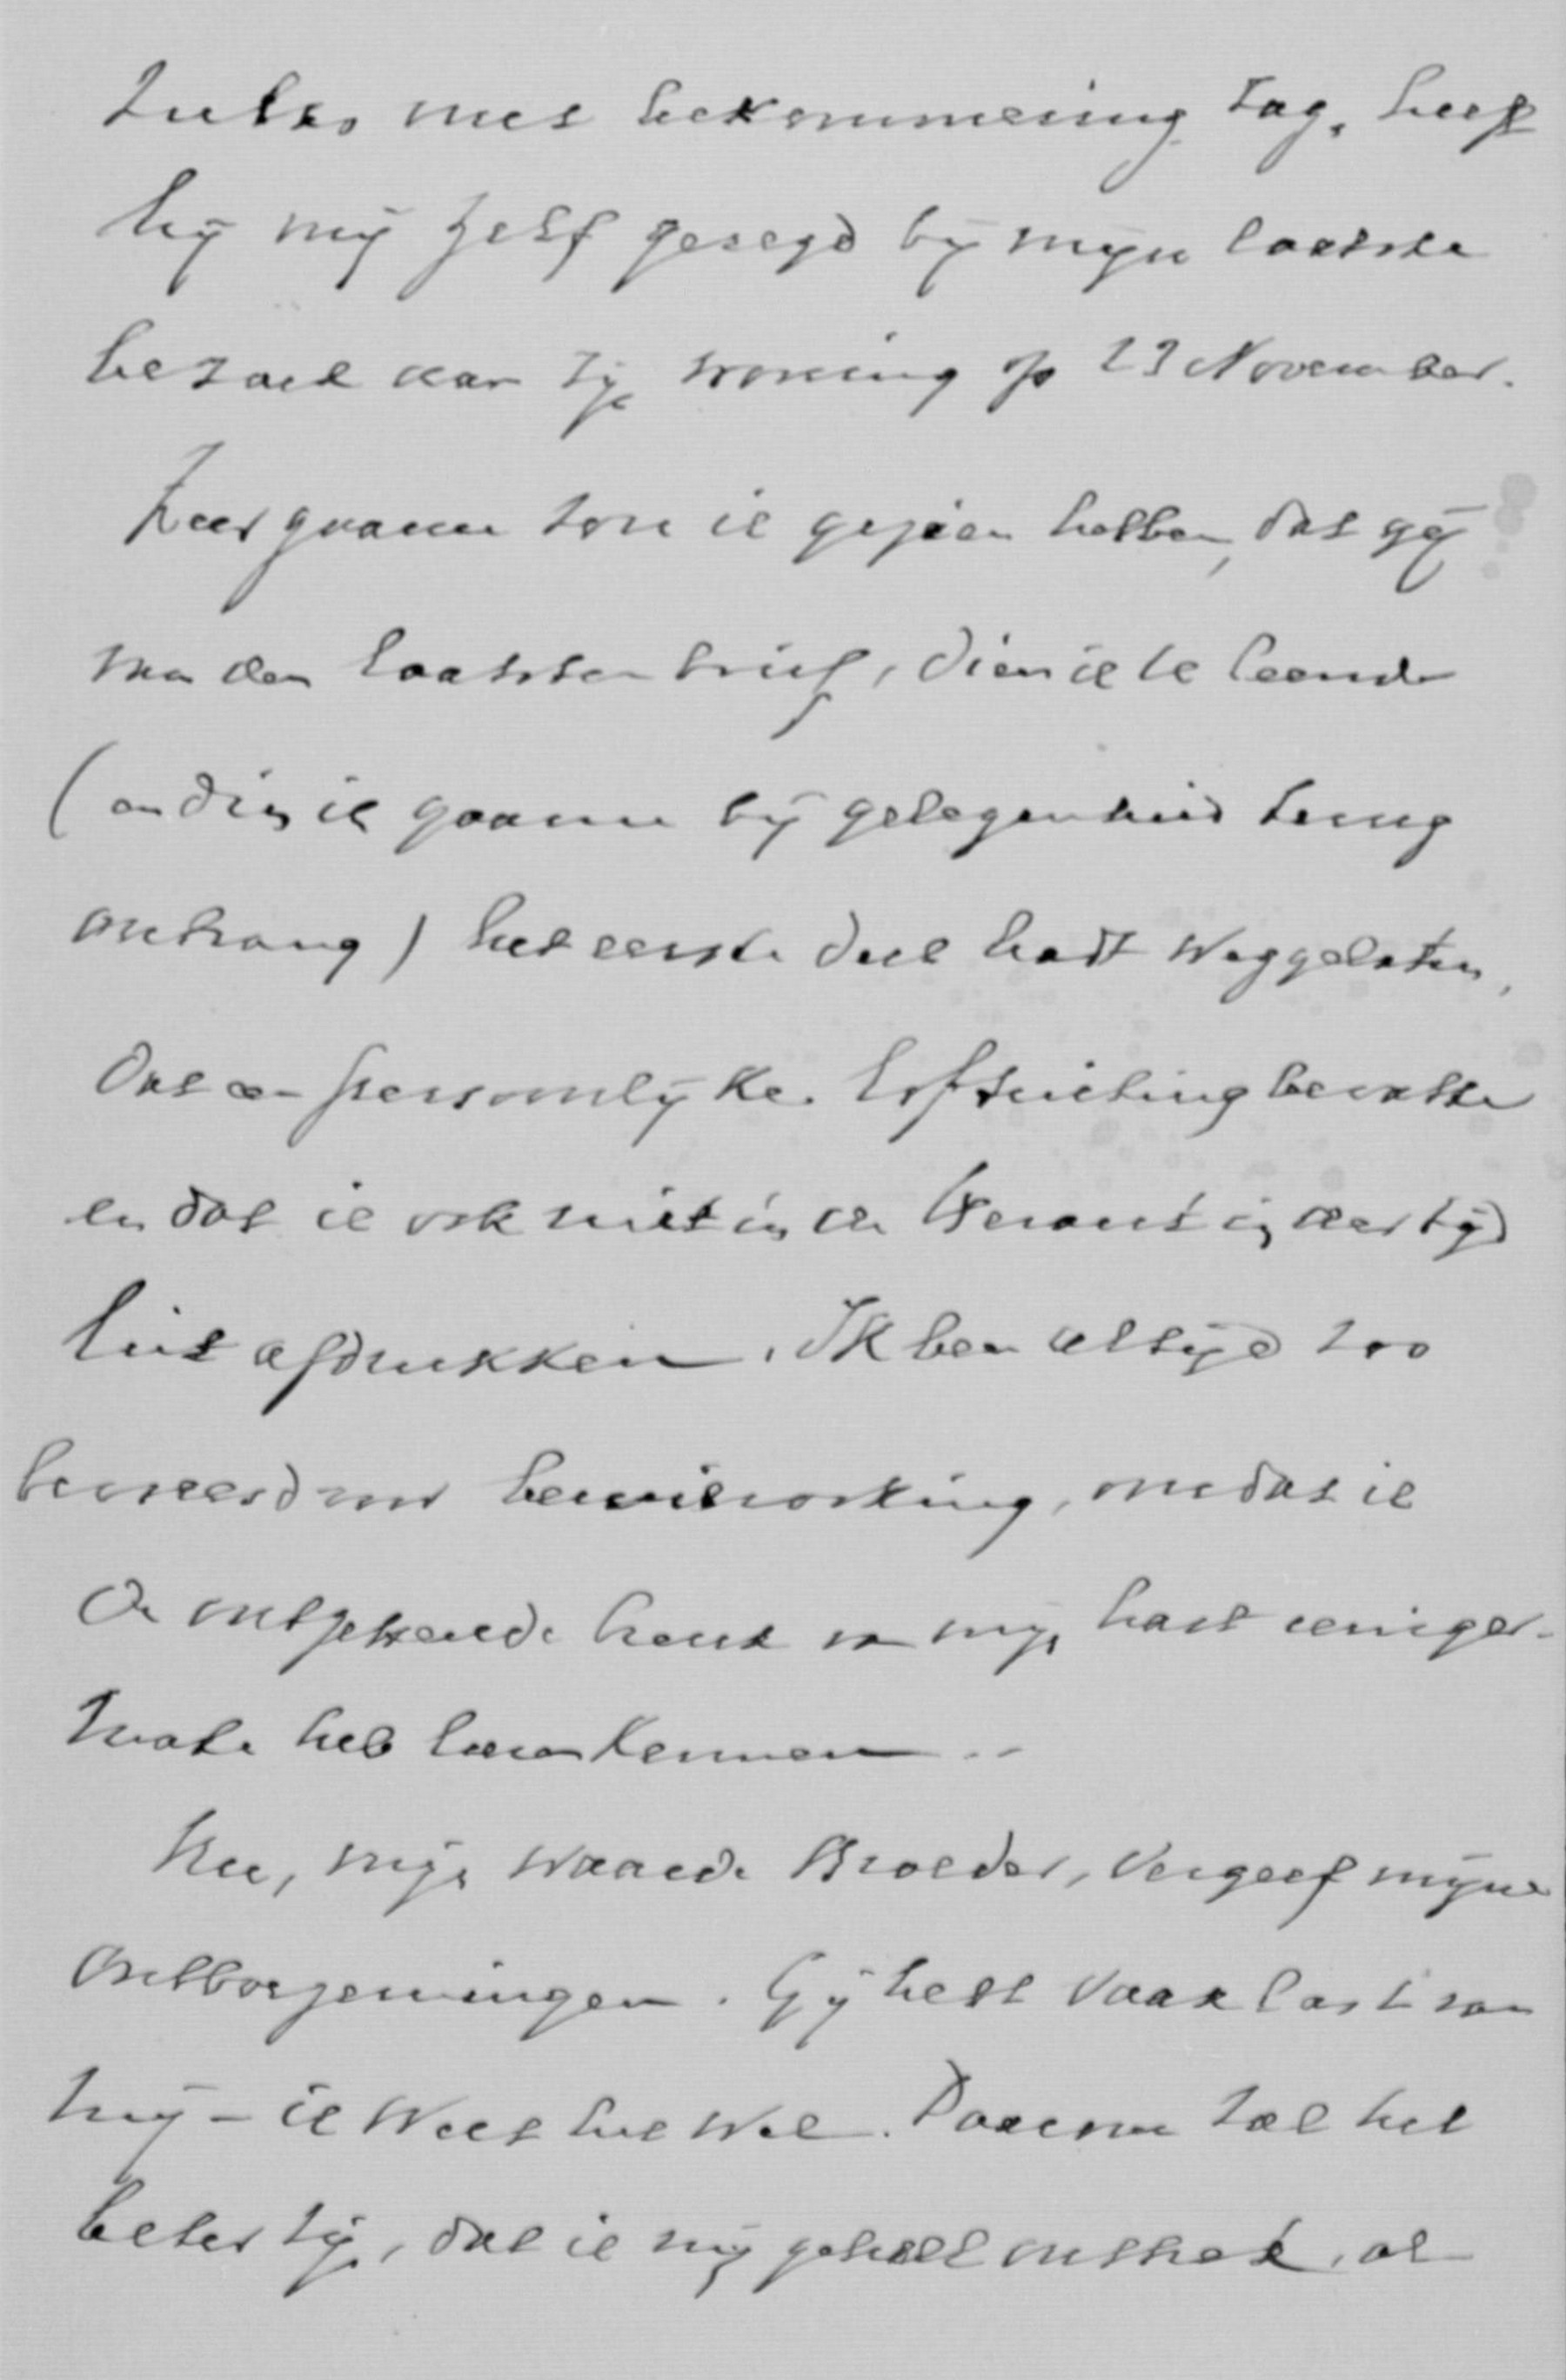 zulks met bekommering zag, heeft
hij mij zelf gezegd bij mijn laatste
bezoek aan zijn woning op 23 November.
Zeer gaarne zou ik gezien hebben, dat gij
van den laatsten brief, dien ik U leende
(en dien ik gaarne bij gelegenheid terug
ontvang) het eerste deel hadt weggelaten,
Dat een persoonlijke ontboezeming bevatte
en dat ik ook niet in de Heraut in der tijd
liet afdrukken. Ik ben altijd zoo
bevreesd voor bewierooking, omdat ik
de ontzettende hoogheid van mijn hart eeniger-
mate heb leeren kennen. –
Nu, mijn waarde Broeder, vergeef mijne
ontboezemingen. Gij hebt vaak last van
mij – ik weet het wel. Daarom zal het
beter zijn, dat ik mij geheel onttrek, al